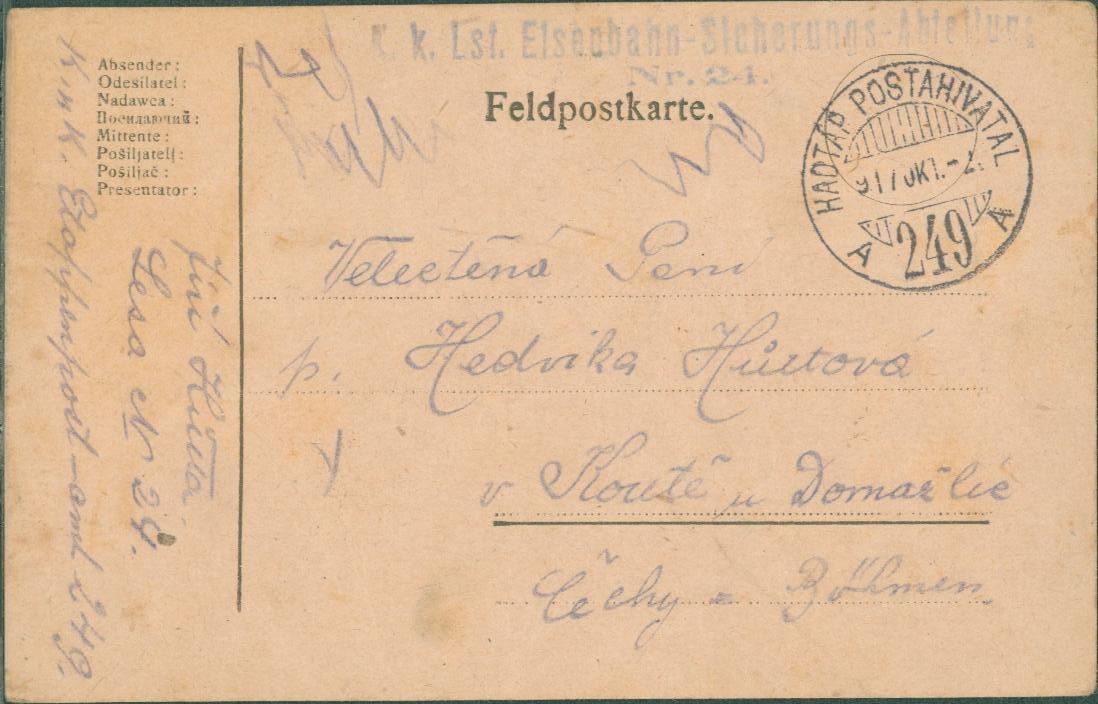 k. k. Lst. Eisenbahn-Sicherungs-Abteilung
Nr. 24.
Feldpostkarte.
HADTÁP POSTAHIVATAL
917 OKT.-2.
A 249 A
Absender:
Odesílatel:
Nadawca:
Посилаючий:
Mittente:
Pošiljatelj:
Pošiljač:
Presentator:
Jiří
Lesa № 24.
K u K. Etappenpost-amt 249.
Velectěná Pení
p. Hedvika
v Koutě u Domažlic
Čechy = Böhmen